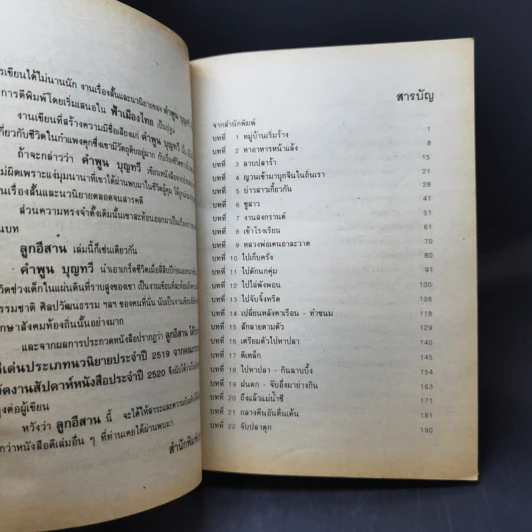 รเขียนได้ไม่นานนัก งานเรื่องสั้นและนวนิยายของ คำพูน บุญทวี
การตีพิมพ์โดยเริ่มเสนอใน ฟ้าเมืองไทย เป็นปฐม
งานเขียนที่สร้างความมีชื่อเสียงแก่ คำพูน บุญทวี
เกี่ยวกับชีวิตในกำแพงคุกซึ่งเขามีวัตถุดิบอยู่มาก
ถ้าจะกล่าวว่า คำพูน บุญทวี เขียนหนังสือ
ไม่ผิดเพราะแง่มุมนานาที่เขาได้ผ่านพบมาในชีวิตผู้คุม
นเรื่องสั้นและนวนิยายตลอดจนสารคดี
ส่วนความทรงจำดั้งเดิมนั้นเขาสะท้อนออกมาเป็นเรื่อง
นบท
ลูกอีสาน เล่มนี้ก็เช่นเดียวกัน
คำพูน บุญทวี นำเอาเกร็ดชีวิตเมื่อสี่สิบปีก่อน
ชีวิตช่วงเด็กในแผ่นดินที่ราบสูงของเขา เป็นงานเขียนที่สะท้อน
รรมชาติ ศิลปวัฒนธรรม ฯลฯ ของคนที่นั่น นับเป็นงานเขียน
กษาสังคมท้องถิ่นนั้นอย่างมาก
และจากผลการประกวดหนังสือปรากฏว่า ลูกอีสาน ได้รับ
ดีเด่นประเภทนวนิยายประจำปี 2519 จากคณะกรรม
จัดงานสัปดาห์หนังสือประจำปี 2520 ซึ่งนับได้ว่า
งต่อผู้เขียน
หวังว่า ลูกอีสาน นี้ จะได้ให้สาระและความบันเทิง
กว่าหนังสือดีเล่มอื่น ๆ ที่ท่านเคยได้ผ่านพบมา
สำนักพิมพ์
สารบัญ
จากสำนักพิมพ์
บทที่ 1 หมู่บ้านเริ่มร้าง 1
บทที่ 2 หาอาหารหน้าแล้ง 8
บทที่ 3 ลาบปลาร้า 15
บทที่ 4 ญวนเข้ามาบุกจีนในถิ่นเรา 21
บทที่ 5 ข่าวสาวเกี้ยวกัน 29
บทที่ 6 ชู้สาว 41
บทที่ 7 งานสงกรานต์ 50
บทที่ 8 เข้าโรงเรียน 60
บทที่ 9 หลวงพ่อเคนอาละวาด 70
บทที่ 10 ไปเก็บครั่ง 80
บทที่ 11 ไปดักนกคุ่ม 91
บทที่ 12 ไปใส่พังพอน 100
บทที่ 13 ไปจับจิ้งหรีด 109
บทที่ 14 เปลี่ยนหลังคาเรือน - ทำขนม 118
บทที่ 15 สักลายตามตัว 127
บทที่ 16 เตรียมตัวไปหาปลา 136
บทที่ 17 ตีเหล็ก 145
บทที่ 18 ไปหาปลา - กินลาบบึ้ง 154
บทที่ 19 ฝนตก - จับอึ่งมาย่างกิน 163
บทที่ 20 ถึงแล้วแม่น้ำชี 172
บทที่ 21 กลางคืนอันตื่นเต้น 181
บทที่ 22 จับปลาดุก 190